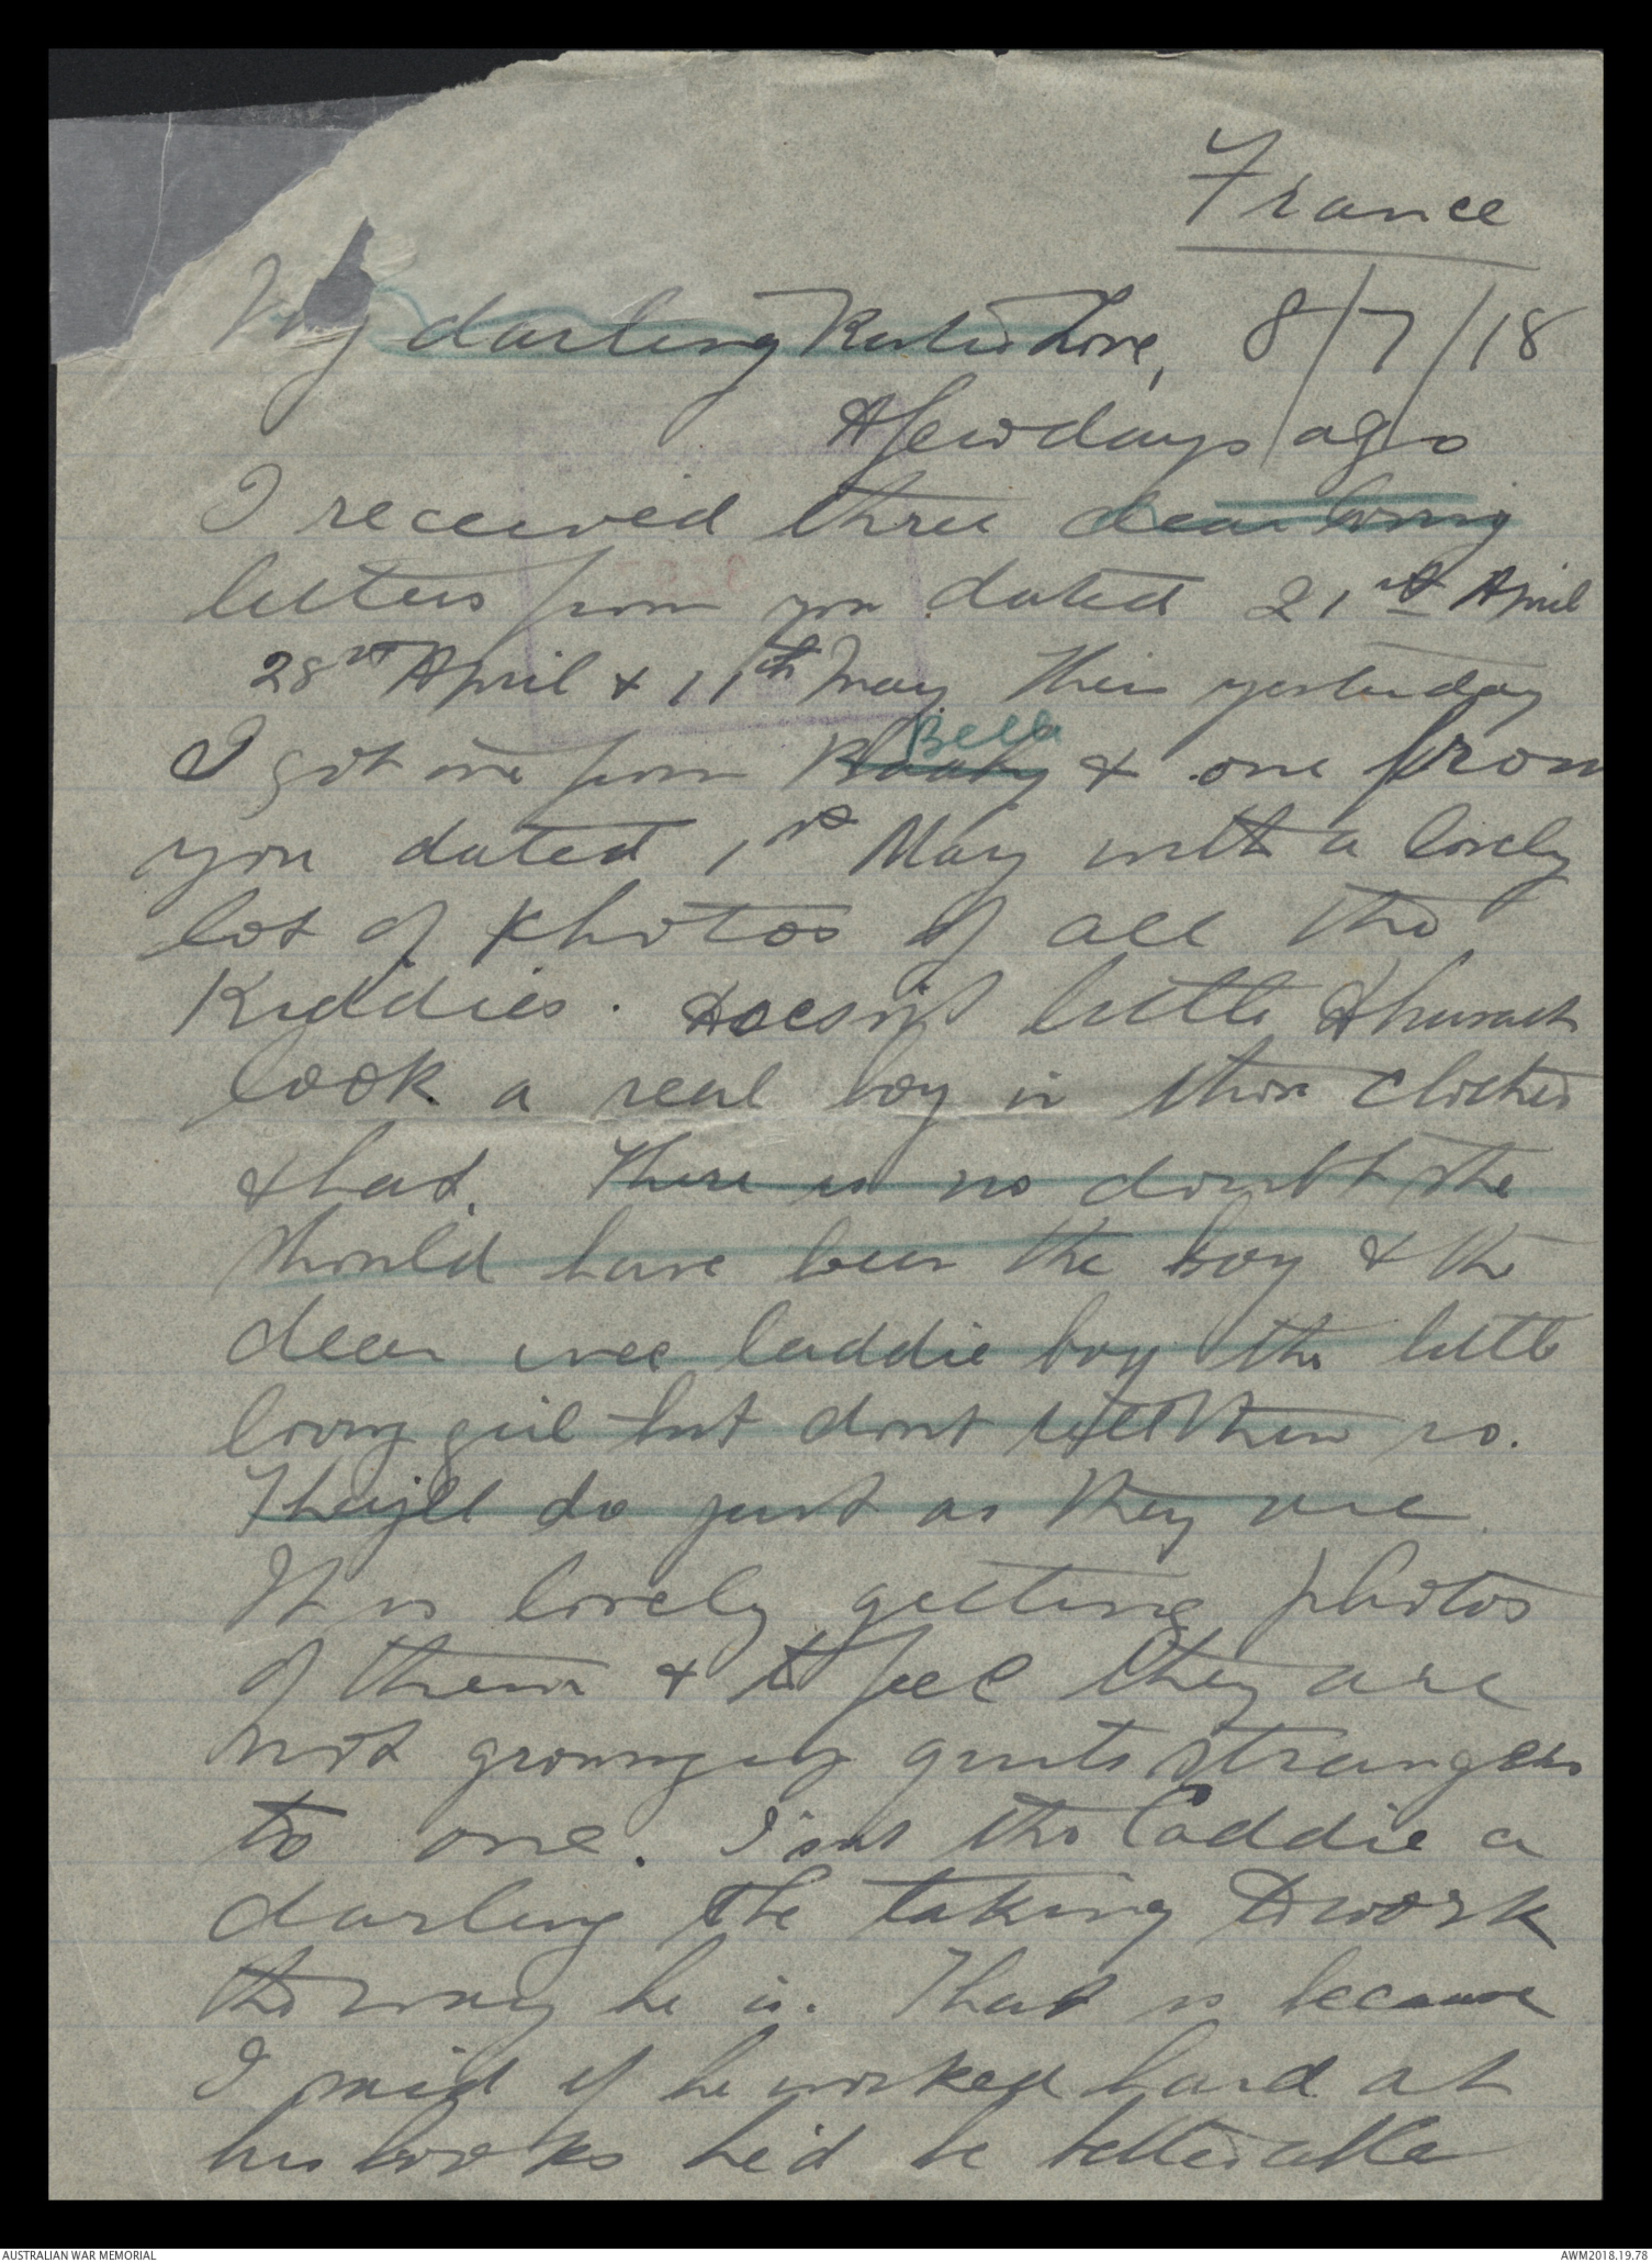 France
My darling Katie Love, 8/7/18
A few days ago
I received three dear loving
letters from you dated 21st April
28th April & 11th May. Then yesterday
Bella
I got one from & one from
you dated 1st May with a lovely
lot of photos of all the
Kiddies. Doesn't little
look a real boy in those clothes
& hat. There is no doubt she
should have been the boy & the
dear wee laddie boy the little
loving girl but dont tell them so.
They'll do just as they are.
It is lovely getting photos
of them & to feel they are
not growing up quite strangers
to one. Isnt the Laddie a
darling the taking to work
the way he is. That is because
I said if he worked hard at
his books he'd be better able
AUSTRALIAN WAR MEMORIAL
AWM2018.19.78